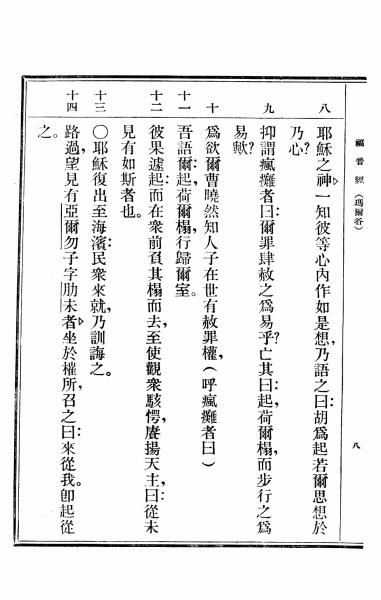 福音經（瑪爾谷）
八
八 耶穌之神一知彼等心內作如是想，乃語之曰：胡爲起若爾思想於
乃心？
九 抑謂瘋癱者曰：爾罪肆赦之爲易乎？亡其曰：起，荷爾榻，而步行之爲
易歟？
十 爲欲爾曹曉然知人子在世有赦罪權，（呼瘋癱者曰）
十一 吾語爾：起，荷爾榻，行歸爾室。
十二 彼果遽起，而在衆前負其榻而去，至使觀衆駭愕，賡揚天主，曰：從未
見有如斯者也。
十三 〇耶穌復出至海濱，民衆來就，乃訓誨之。
十四 路過，望見有亞爾勿子字肋未者，坐於權所，召之曰：來從我。卽起從
之。